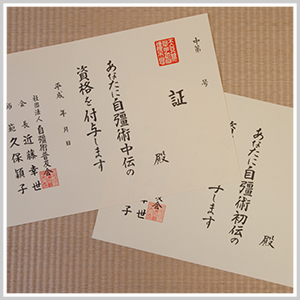 中第 号
証
殿
あなたに自彊術中伝の
資格を付与します
平成 年 月 日
社団法人 自彊術普及会
会長 近藤幸世
師範 久保穎子
殿
あなたに自彊術初伝の
します
会
世
子